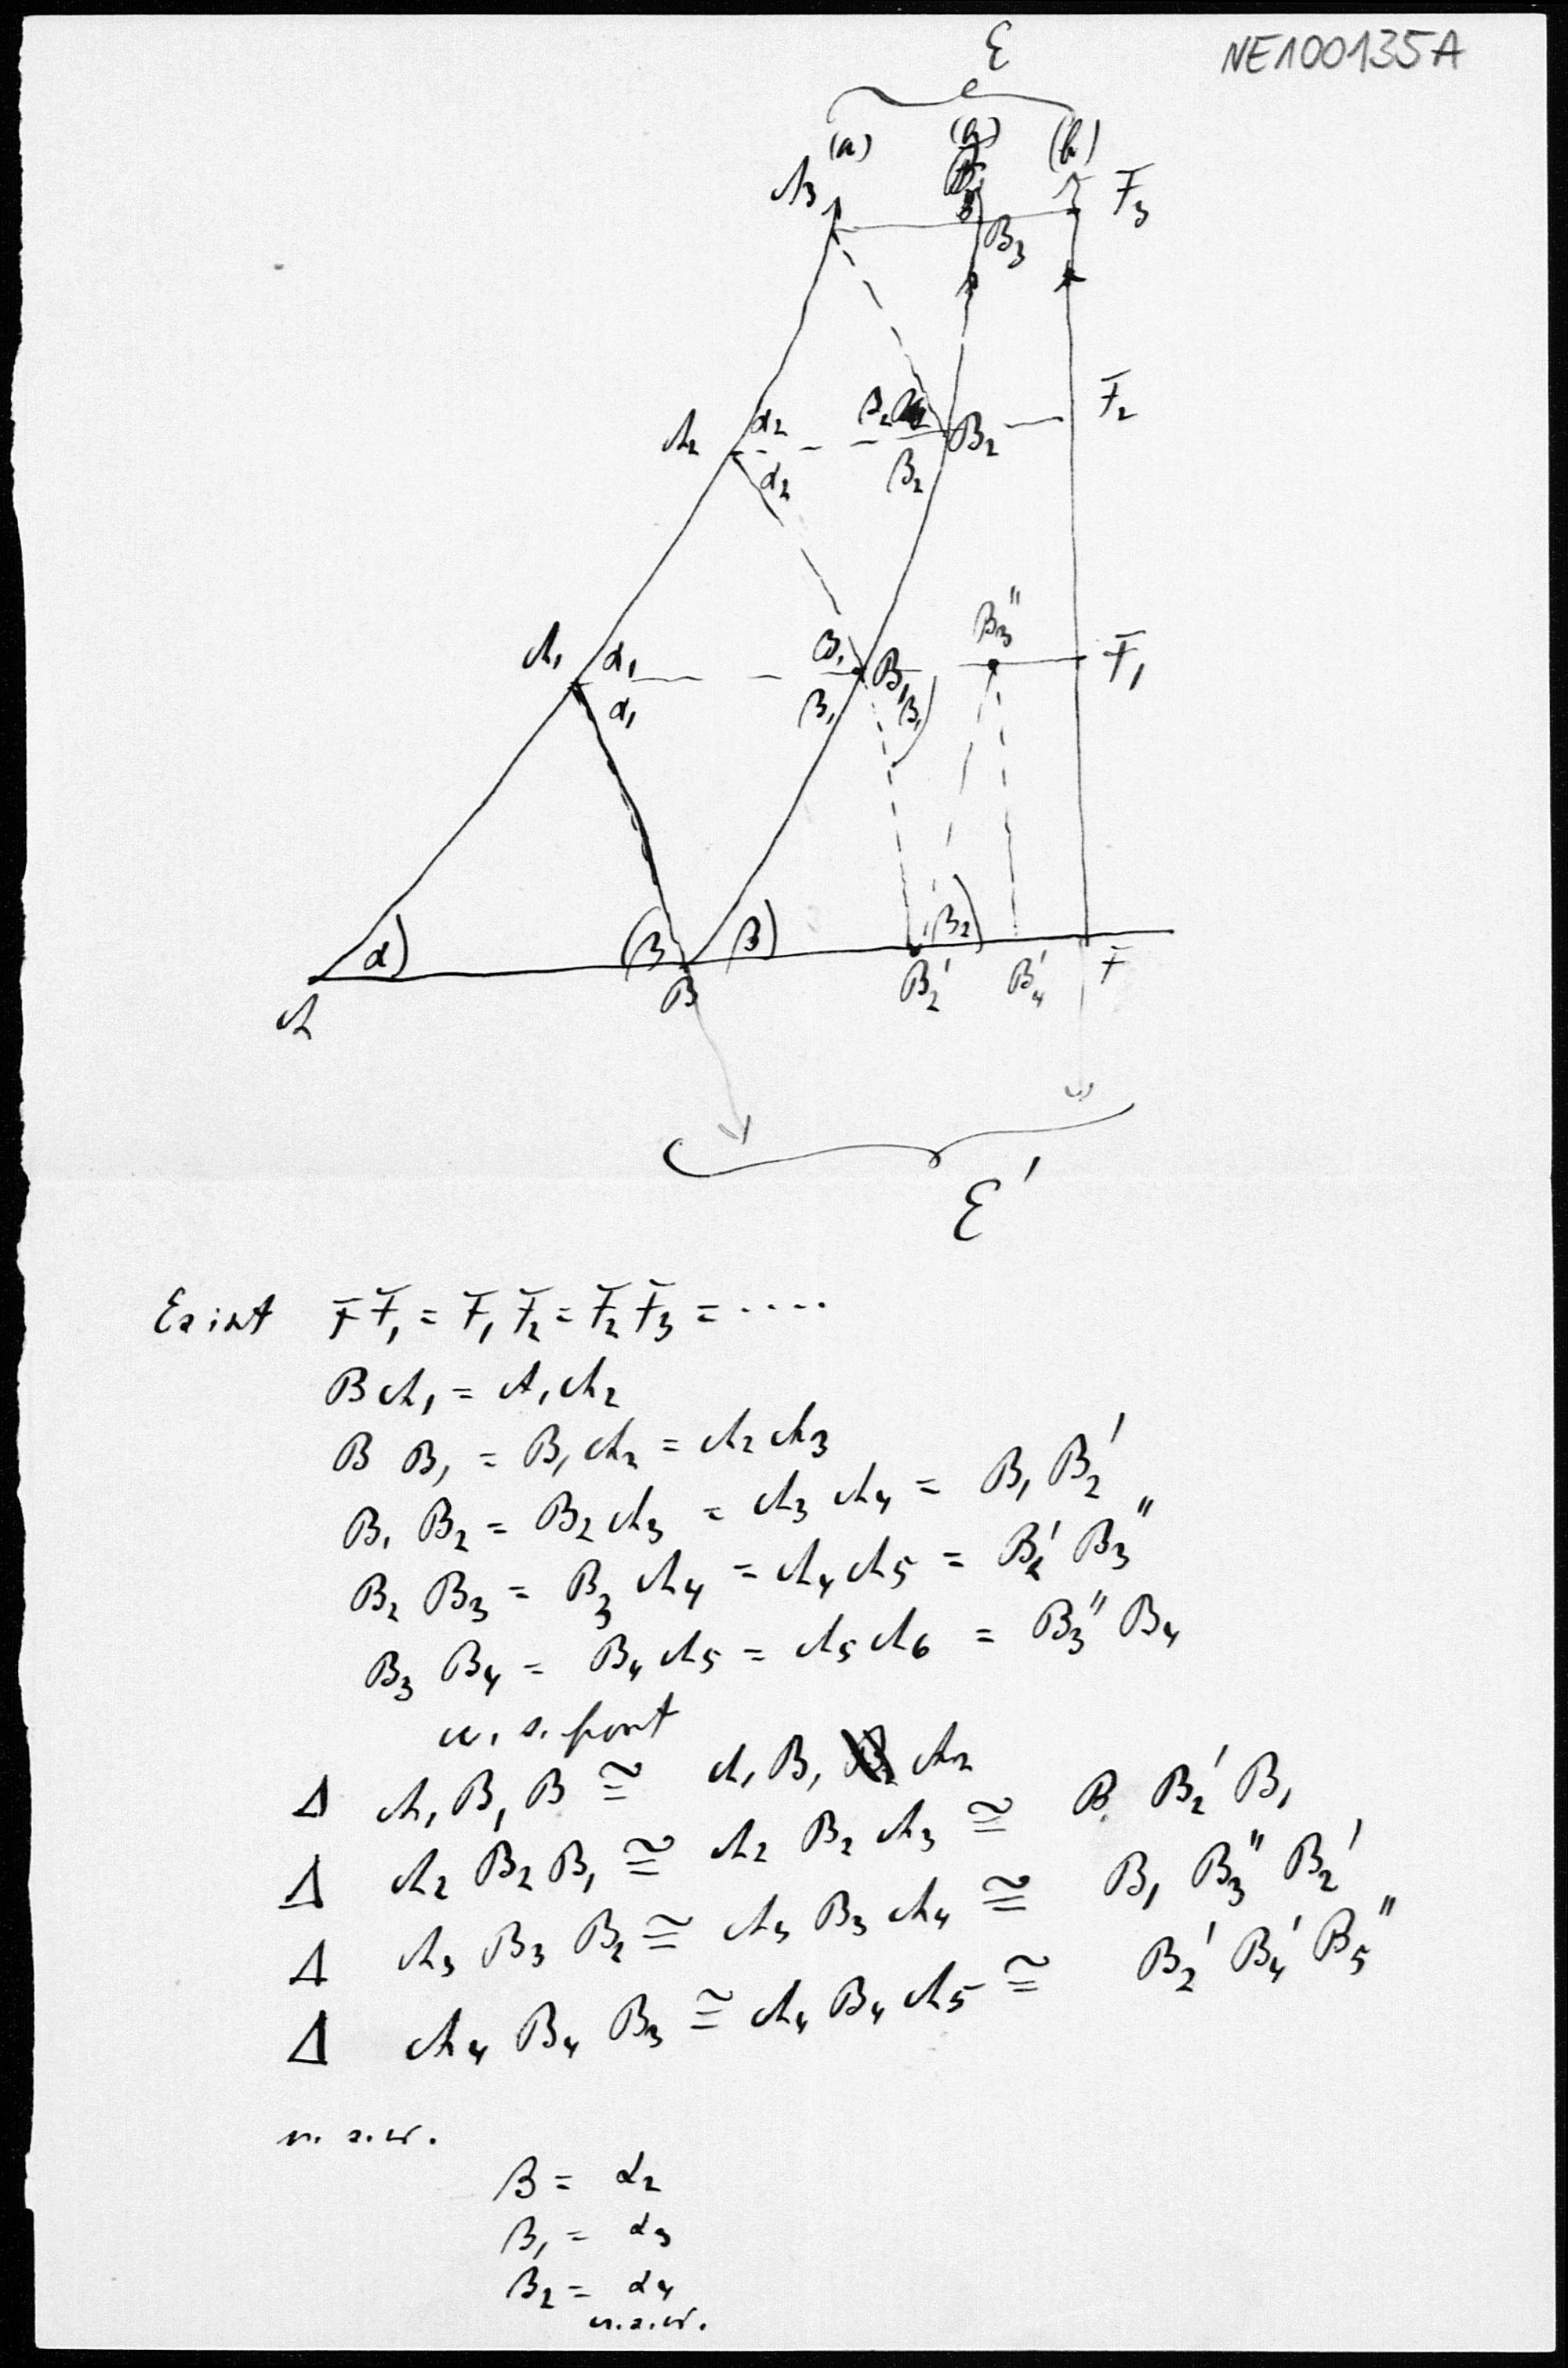 NE100135A
ε
(a) (b)
A₃ F₃
B₃
A₂ α₂ β₂ B₂ F₂
α₂ β₂
B₃″
A₁ α₁ β₁ B₁ F₁
α₁ β₁ β₁
α β β β₂
A B B₂′ B₄′ F
ε′
Es ist F F₁ = F₁ F₂ = F₂ F₃ = ....
B A₁ = A₁ A₂
B B₁ = B₁ A₂ = A₂ A₃
B₁ B₂ = B₂ A₃ = A₃ A₄ = B₁ B₂′
B₂ B₃ = B₃ A₄ = A₄ A₅ = B₂′ B₃″
B₃ B₄ = B₄ A₅ = A₅ A₆ = B₃″ B₄
u. s. fort
Δ A₁ B₁ B ≅ A₁ B₁ A₂
Δ A₂ B₂ B₁ ≅ A₂ B₂ A₃ ≅ B B₂′ B₁
Δ A₃ B₃ B₂ ≅ A₃ B₃ A₄ ≅ B₁ B₃″ B₂′
Δ A₄ B₄ B₃ ≅ A₄ B₄ A₅ ≅ B₂′ B₄′ B₅″
u. s. w.
β = α₂
β₁ = α₃
β₂ = α₄
u. s. w.